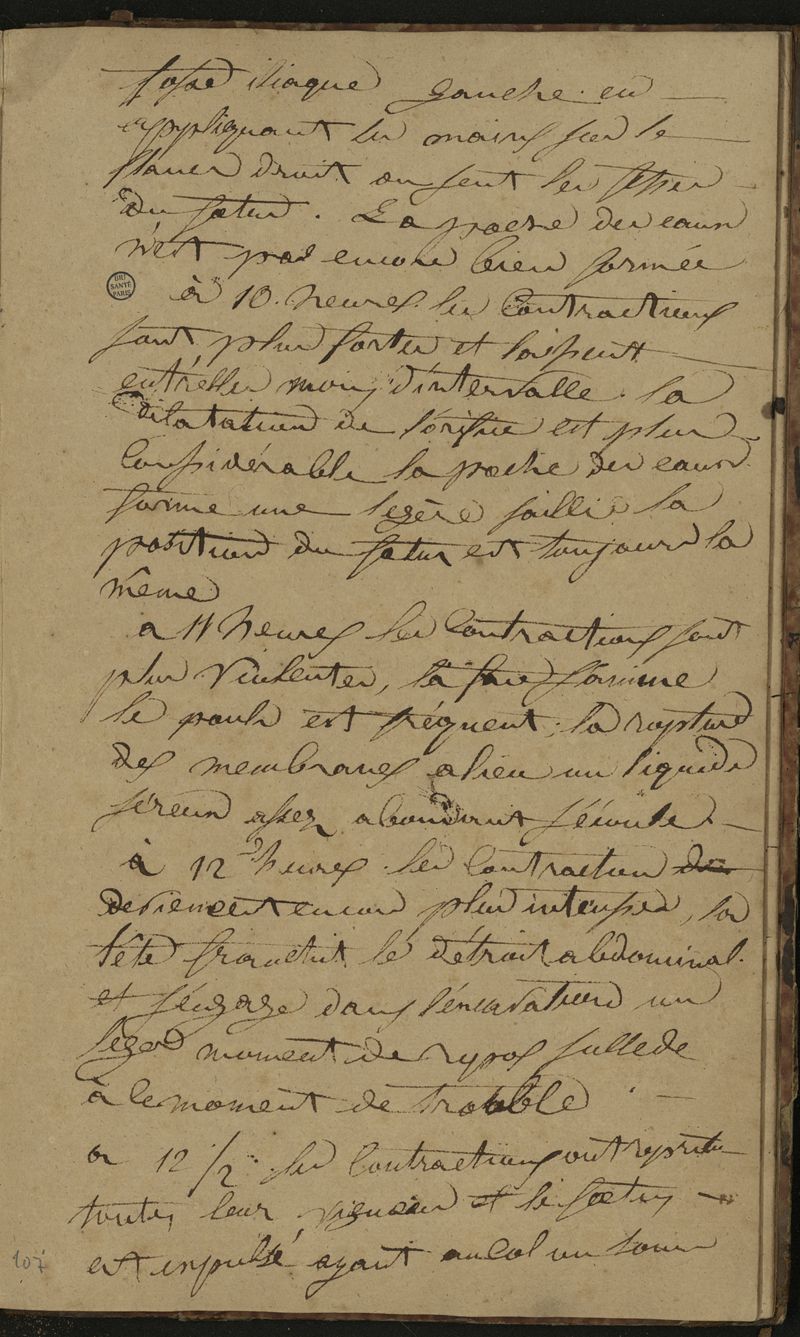 fosse iliaque gauche. en
appliquant les mains sur le
flanc droit on sent les fesses
du fœtus. La poche des eaux
n'est pas encore bien formée
à 10 heures les contractions
sont plus fortes et laissent
entr'elles moins d'intervalle. la
dilatation de l'orifice est plus
considérable la poche des eaux
forme une légère saillie la
position du fœtus est toujours la
même
BIU SANTÉ PARIS
à 11 heures les contractions sont
plus violentes, la face s'anime
le pouls est fréquent, la rupture
des membranes a lieu un liquide
séreux assez abondant s'écoule.
à 12 heures les contraction
deviennent encore plus intenses, la
tête franchit le détroit abdominal.
et s'engage dans l'excavation un
léger moment de repos succède
à ce moment de trouble
a 12 1/2 les contractions ont repris
toutes leur vigueur et le fœtus
est expulsé ayant au col un tour
107